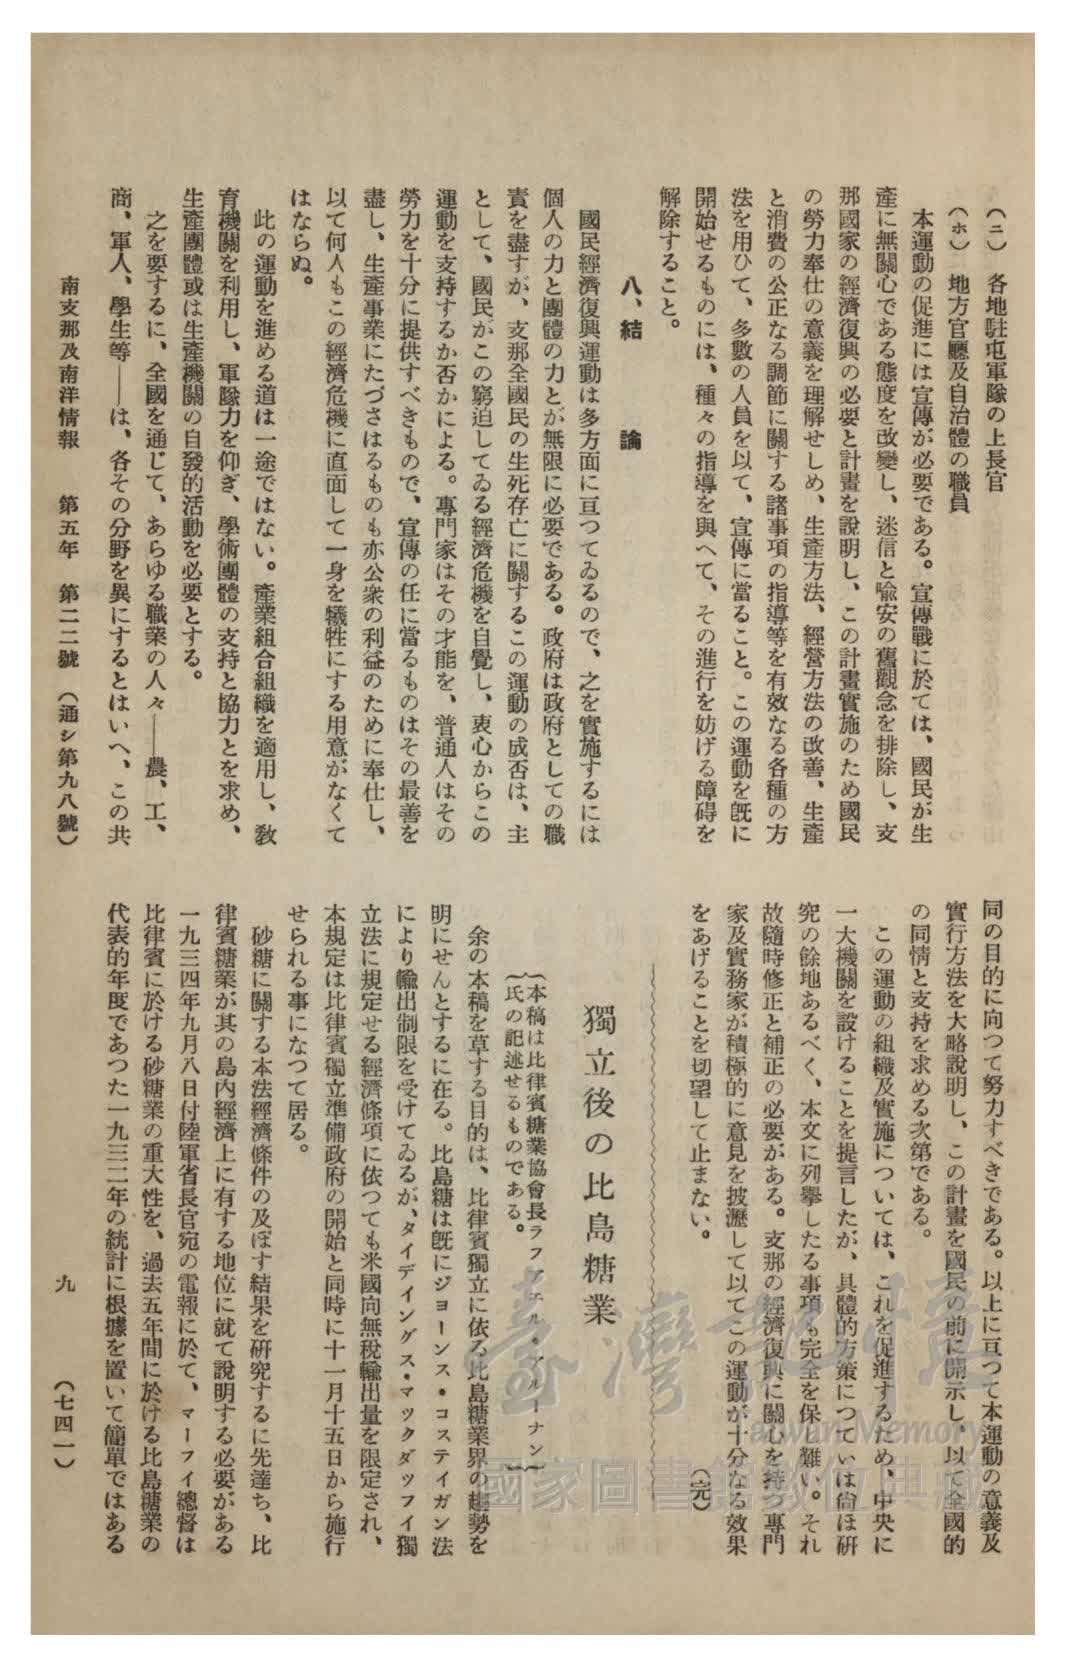 (ニ) 各地駐屯軍隊の上長官
(ホ) 地方官廳及自治體の職員
本運動の促進には宣傳が必要である。宣傳戰に於ては、國民が生
產に無關心である態度を改變し、迷信と喩安の舊觀念を排除し、支
那國家の經濟復興の必要と計畫を說明し、この計畫實施のため國民
の勞力奉仕の意義を理解せしめ、生產方法、經營方法の改善、生產
と消費の公正なる調節に關する諸事項の指導等を有效なる各種の方
法を用ひて、多數の人員を以て、宣傳に當ること。この運動を旣に
開始せるものには、種々の指導を與へて、その進行を妨げる障碍を
解除すること。
八、結論
國民經濟復興運動は多方面に亘つてゐるので、之を實施するには
個人の力と團體の力とが無限に必要である。政府は政府としての職
責を盡すが、支那全國民の生死存亡に關するこの運動の成否は、主
として、國民がこの窮迫してゐる經濟危機を自覺し、衷心からこの
運動を支持するか否かによる。專門家はその才能を、普通人はその
勞力を十分に提供すべきもので、宣傳の任に當るものはその最善を
盡し、生產事業にたづさはるものも亦公衆の利益のために奉仕し、
以て何人もこの經濟危機に直面して一身を犧牲にする用意がなくて
はならぬ。
此の運動を進める道は一途ではない。產業組合組織を適用し、敎
育機關を利用し、軍隊力を仰ぎ、學術團體の支持と協力とを求め、
生產團體或は生產機關の自發的活動を必要とする。
之を要するに、全國を通じて、あらゆる職業の人々——農、工、
商、軍人、學生等——は、各その分野を異にするとはいへ、この共
同の目的に向つて努力すべきである。以上に亘つて本運動の意義及
實行方法を大略說明し、この計畫を國民の前に開示し、以て全國的
の同情と支持を求める次第である。
この運動の組織及實施については、これを促進するため、中央に
一大機關を設けることを提言したが、具體的方策については尙ほ硏
究の餘地あるべく、本文に列擧したる事項も完全を保し難い。それ
故隨時修正と補正の必要がある。支那の經濟復興に關心を持つ專門
家及實務家が積極的に意見を披瀝して以てこの運動が十分なる效果
をあげることを切望して止まない。
(完)
獨立後の比島糖業
(本稿は比律賓糖業協會長ラファエル・アルーナン
氏の記述せるものである。)
余の本稿を草する目的は、比律賓獨立に依る比島糖業界の趨勢を
明にせんとするに在る。比島糖は旣にジョーンス・コスティガン法
により輸出制限を受けてゐるが、タイディングス・マックダッフィ獨
立法に規定せる經濟條項に依つても米國向無稅輸出量を限定され、
本規定は比律賓獨立準備政府の開始と同時に十一月十五日から施行
せられる事になつて居る。
砂糖に關する本法經濟條件の及ぼす結果を硏究するに先達ち、比
律賓糖業が其の島內經濟上に有する地位に就て說明する必要がある
一九三四年九月八日付陸軍省長官宛の電報に於て、マーフィ總督は
比律賓に於ける砂糖業の重大性を、過去五年間に於ける比島糖業の
代表的年度であつた一九三二年の統計に根據を置いて簡單ではある
南支那及南洋情報 第五年 第二二號 (通シ第九八號)
九 (七四一)
臺灣記憶
Taiwan Memory
國家圖書館數位典藏